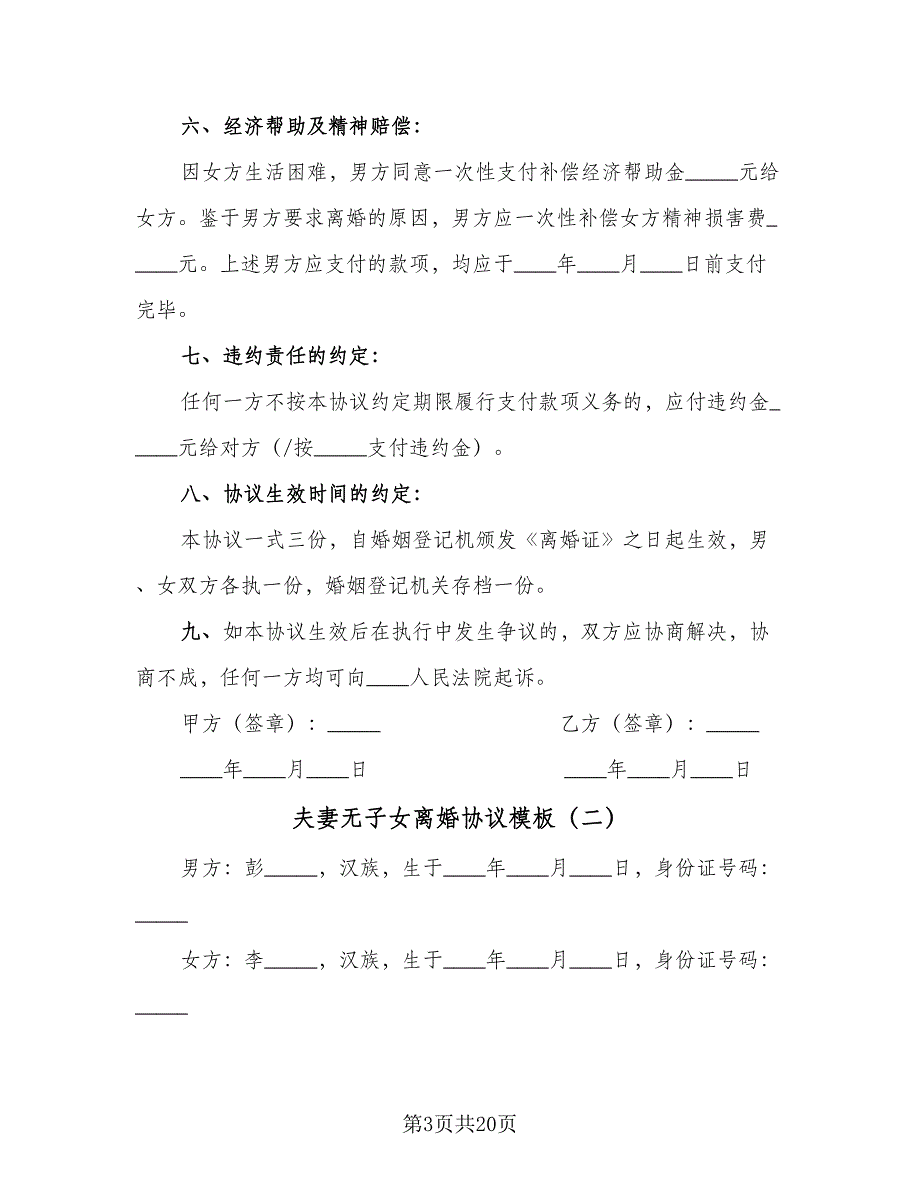 六、经济帮助及精神赔偿：
因女方生活困难，男方同意一次性支付补偿经济帮助金_____元给
女方。鉴于男方要求离婚的原因，男方应一次性补偿女方精神损害费_
____元。上述男方应支付的款项，均应于____年____月____日前支付
完毕。
七、违约责任的约定：
任何一方不按本协议约定期限履行支付款项义务的，应付违约金_
____元给对方（/按_____支付违约金）。
八、协议生效时间的约定：
本协议一式三份，自婚姻登记机颁发《离婚证》之日起生效，男
、女双方各执一份，婚姻登记机关存档一份。
九、如本协议生效后在执行中发生争议的，双方应协商解决，协
商不成，任何一方均可向____人民法院起诉。
甲方（签章）：_____ 乙方（签章）：_____
____年____月____日 ____年____月____日
夫妻无子女离婚协议模板（二）
男方：彭_____，汉族，生于____年____月____日，身份证号码：
_____
女方：李_____，汉族，生于____年____月____日，身份证号码：
_____
第3页共20页